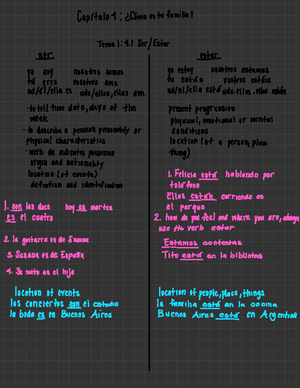 Capítulo 4: ¿Cómo es tu familia?
Tema 1: 4.1 Ser/Estar
ser
yo soy nosotros somos
tú eres vosotros sois
ud/él/ella es uds/ellos/ellas son
- to tell time, date, days of the
week
- to describe a person's personality or
physical characteristics
- with de indicates possession
origin and nationality
location (of events)
definition and identification
1. son las doce hoy es martes
es el cuatro
2. la guitarra es de Susana
3. Susana es de España
4. Su nieto es el hijo
location of events
los conciertos son el estadio
la boda es en Buenos Aires
estar
yo estoy nosotros estamos
tú estás vostros estáis
ud/él/ella está uds/ellos/ellas están
present progressive
physical, emotional or mental
conditions
location (of a person, place,
thing)
1. Felicia está hablando por
teléfono
Ellos están corriendo en
el parque
2. how do you feel and where you are, always
use the verb estar
Estamos contentas
Tito está en la biblioteca
location of people, place, things
la familia está en la cocina
Buenos Aires está en Argentina